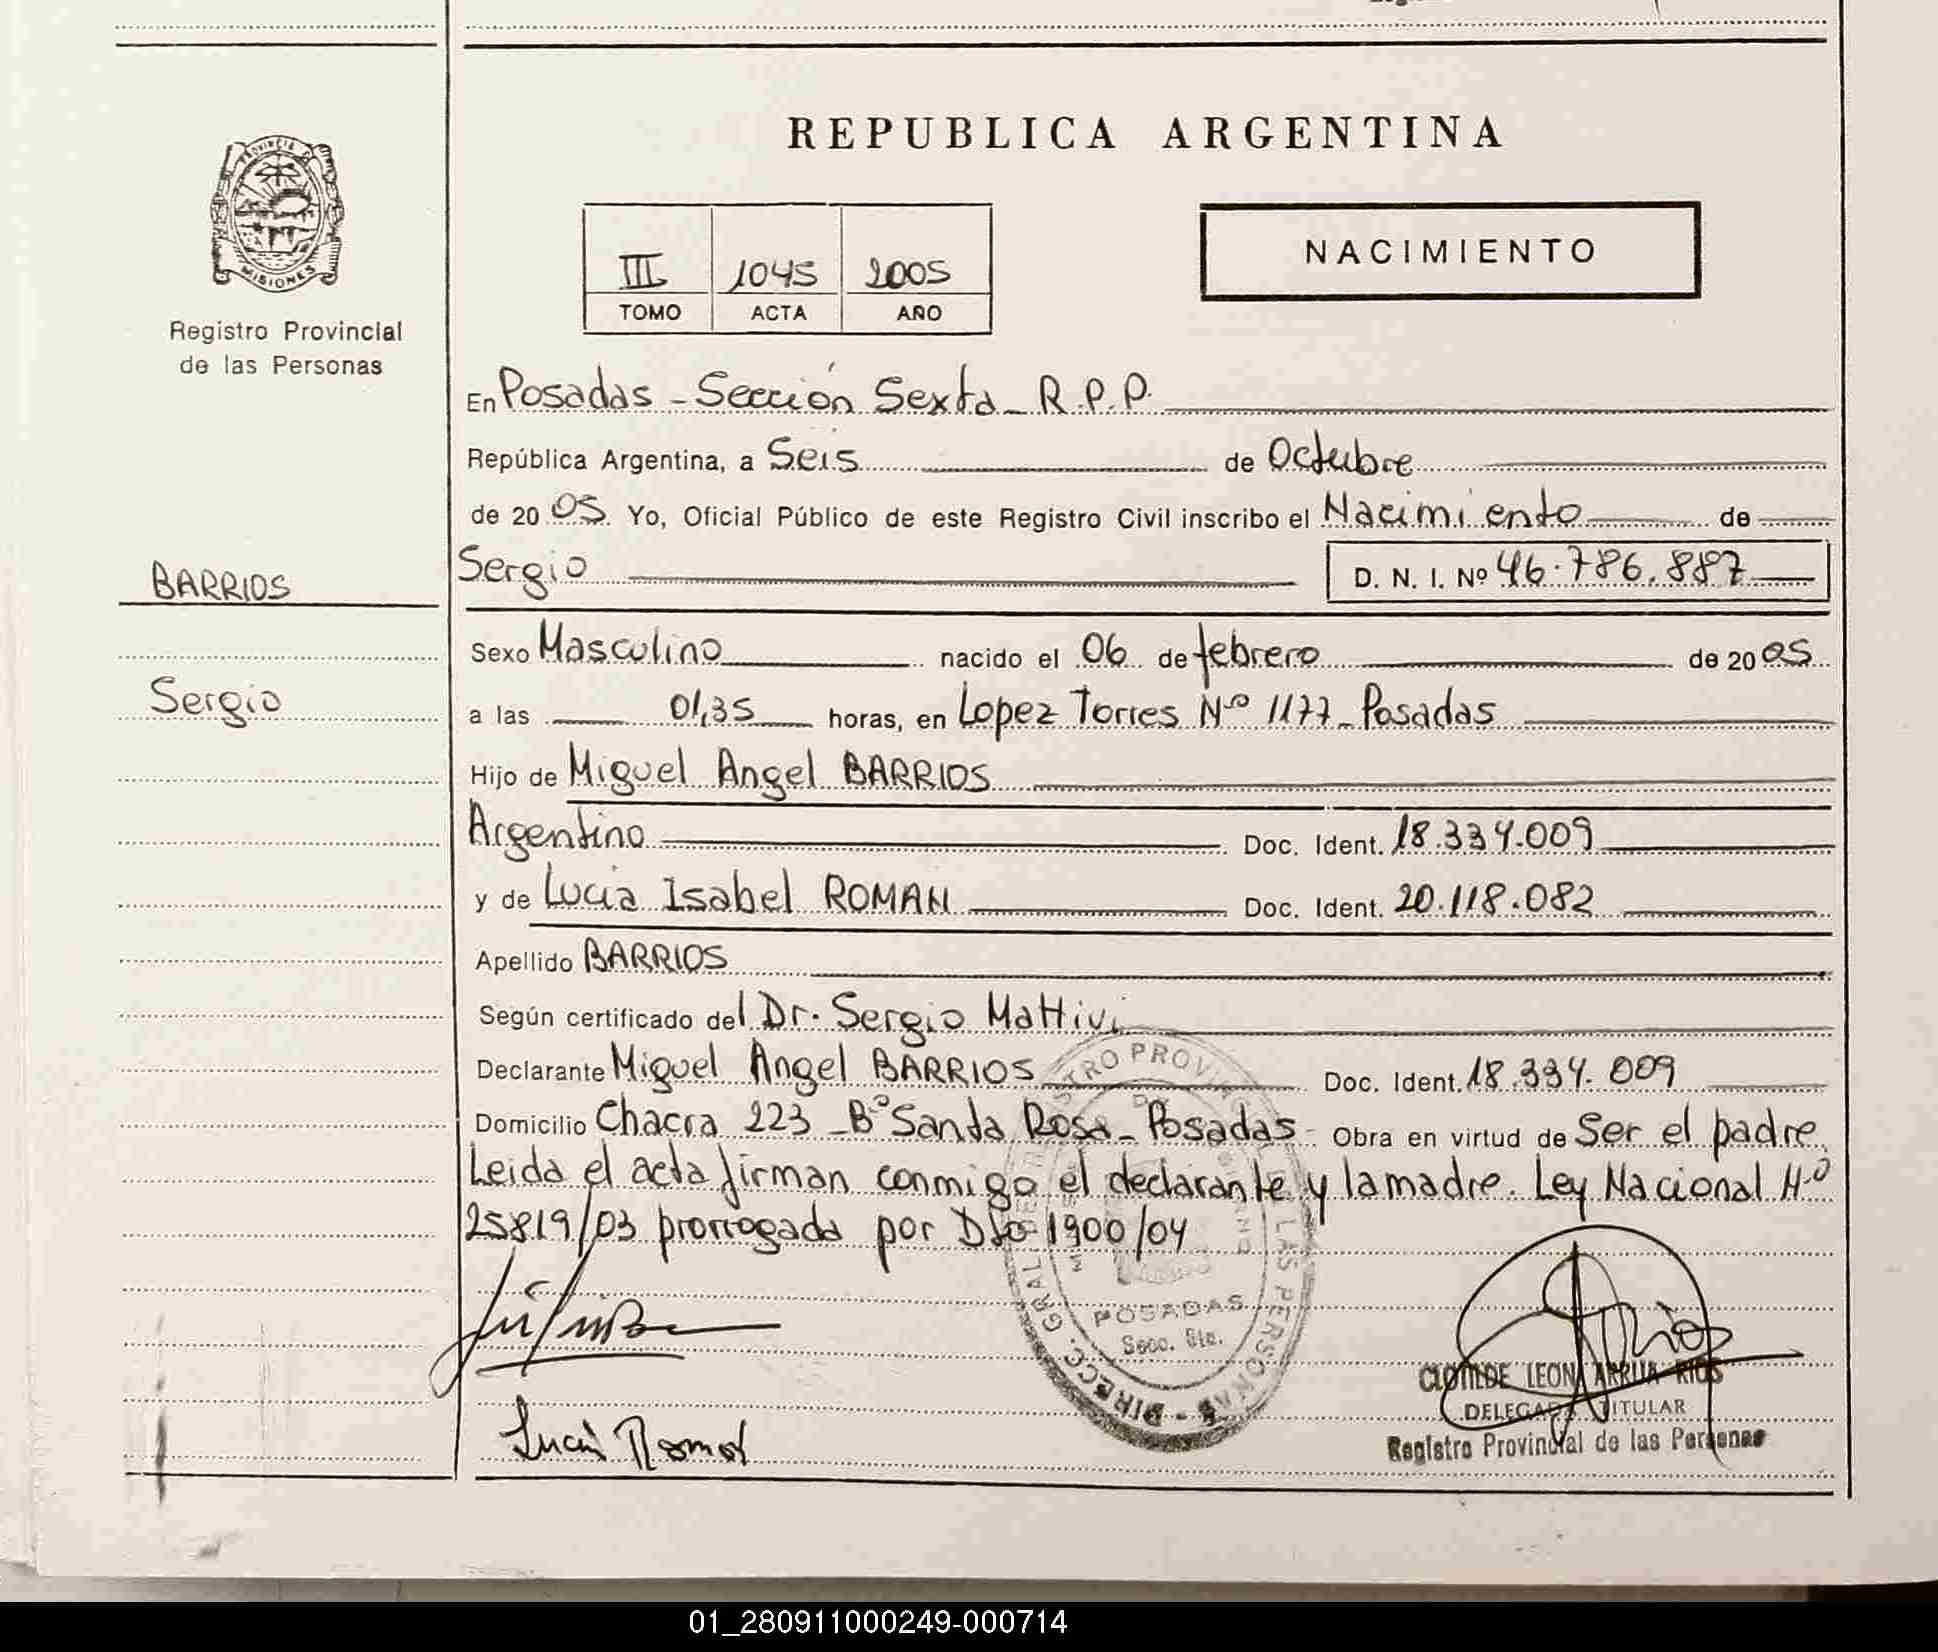 REPUBLICA ARGENTINA
PROVINCIA D
MISIONES
Registro Provincial
de las Personas
III 1045 2005
TOMO ACTA AÑO
NACIMIENTO
En Posadas - Sección Sexta - R.P.P.
República Argentina, a Seis de Octubre
de 2005. Yo, Oficial Público de este Registro Civil inscribo el Nacimiento de
BARRIOS
Sergio
Sergio D. N. I. Nº 46.786.887
Sexo Masculino nacido el 06 de febrero de 2005
a las 01,35 horas, en Lopez Torres Nº 1177 - Posadas
Hijo de Miguel Angel BARRIOS
Argentino Doc. Ident. 18.334.009
y de Lucia Isabel ROMAN Doc. Ident. 20.118.082
Apellido BARRIOS
Según certificado del Dr. Sergio Mattivi
Declarante Miguel Angel BARRIOS Doc. Ident. 18.334.009
Domicilio Chacra 223 - Bº Santa Rosa - Posadas - Obra en virtud de Ser el padre
Leida el acta firman conmigo el declarante y la madre. Ley Nacional Nº
25819/03 prorrogada por Dto 1900/04
POSADAS
Secc. 6ta.
Lucia Roman
CLOTILDE LEONA ARRUA RIOS
DELEGADA TITULAR
Registro Provincial de las Personas
01_280911000249-000714